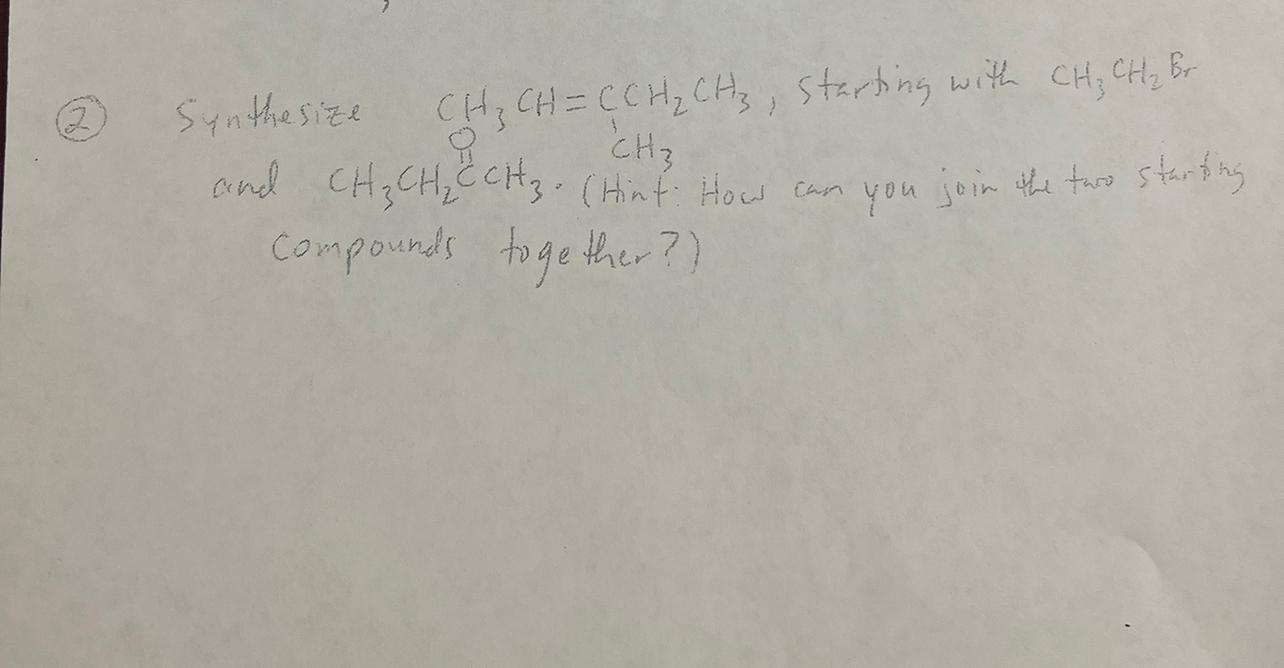 ② Synthesize CH₃CH=CCH₂CH₃, starting with CH₃CH₂Br
CH₃
O
and CH₃CH₂CCH₃. (Hint: How can you join the two starting
compounds together?)